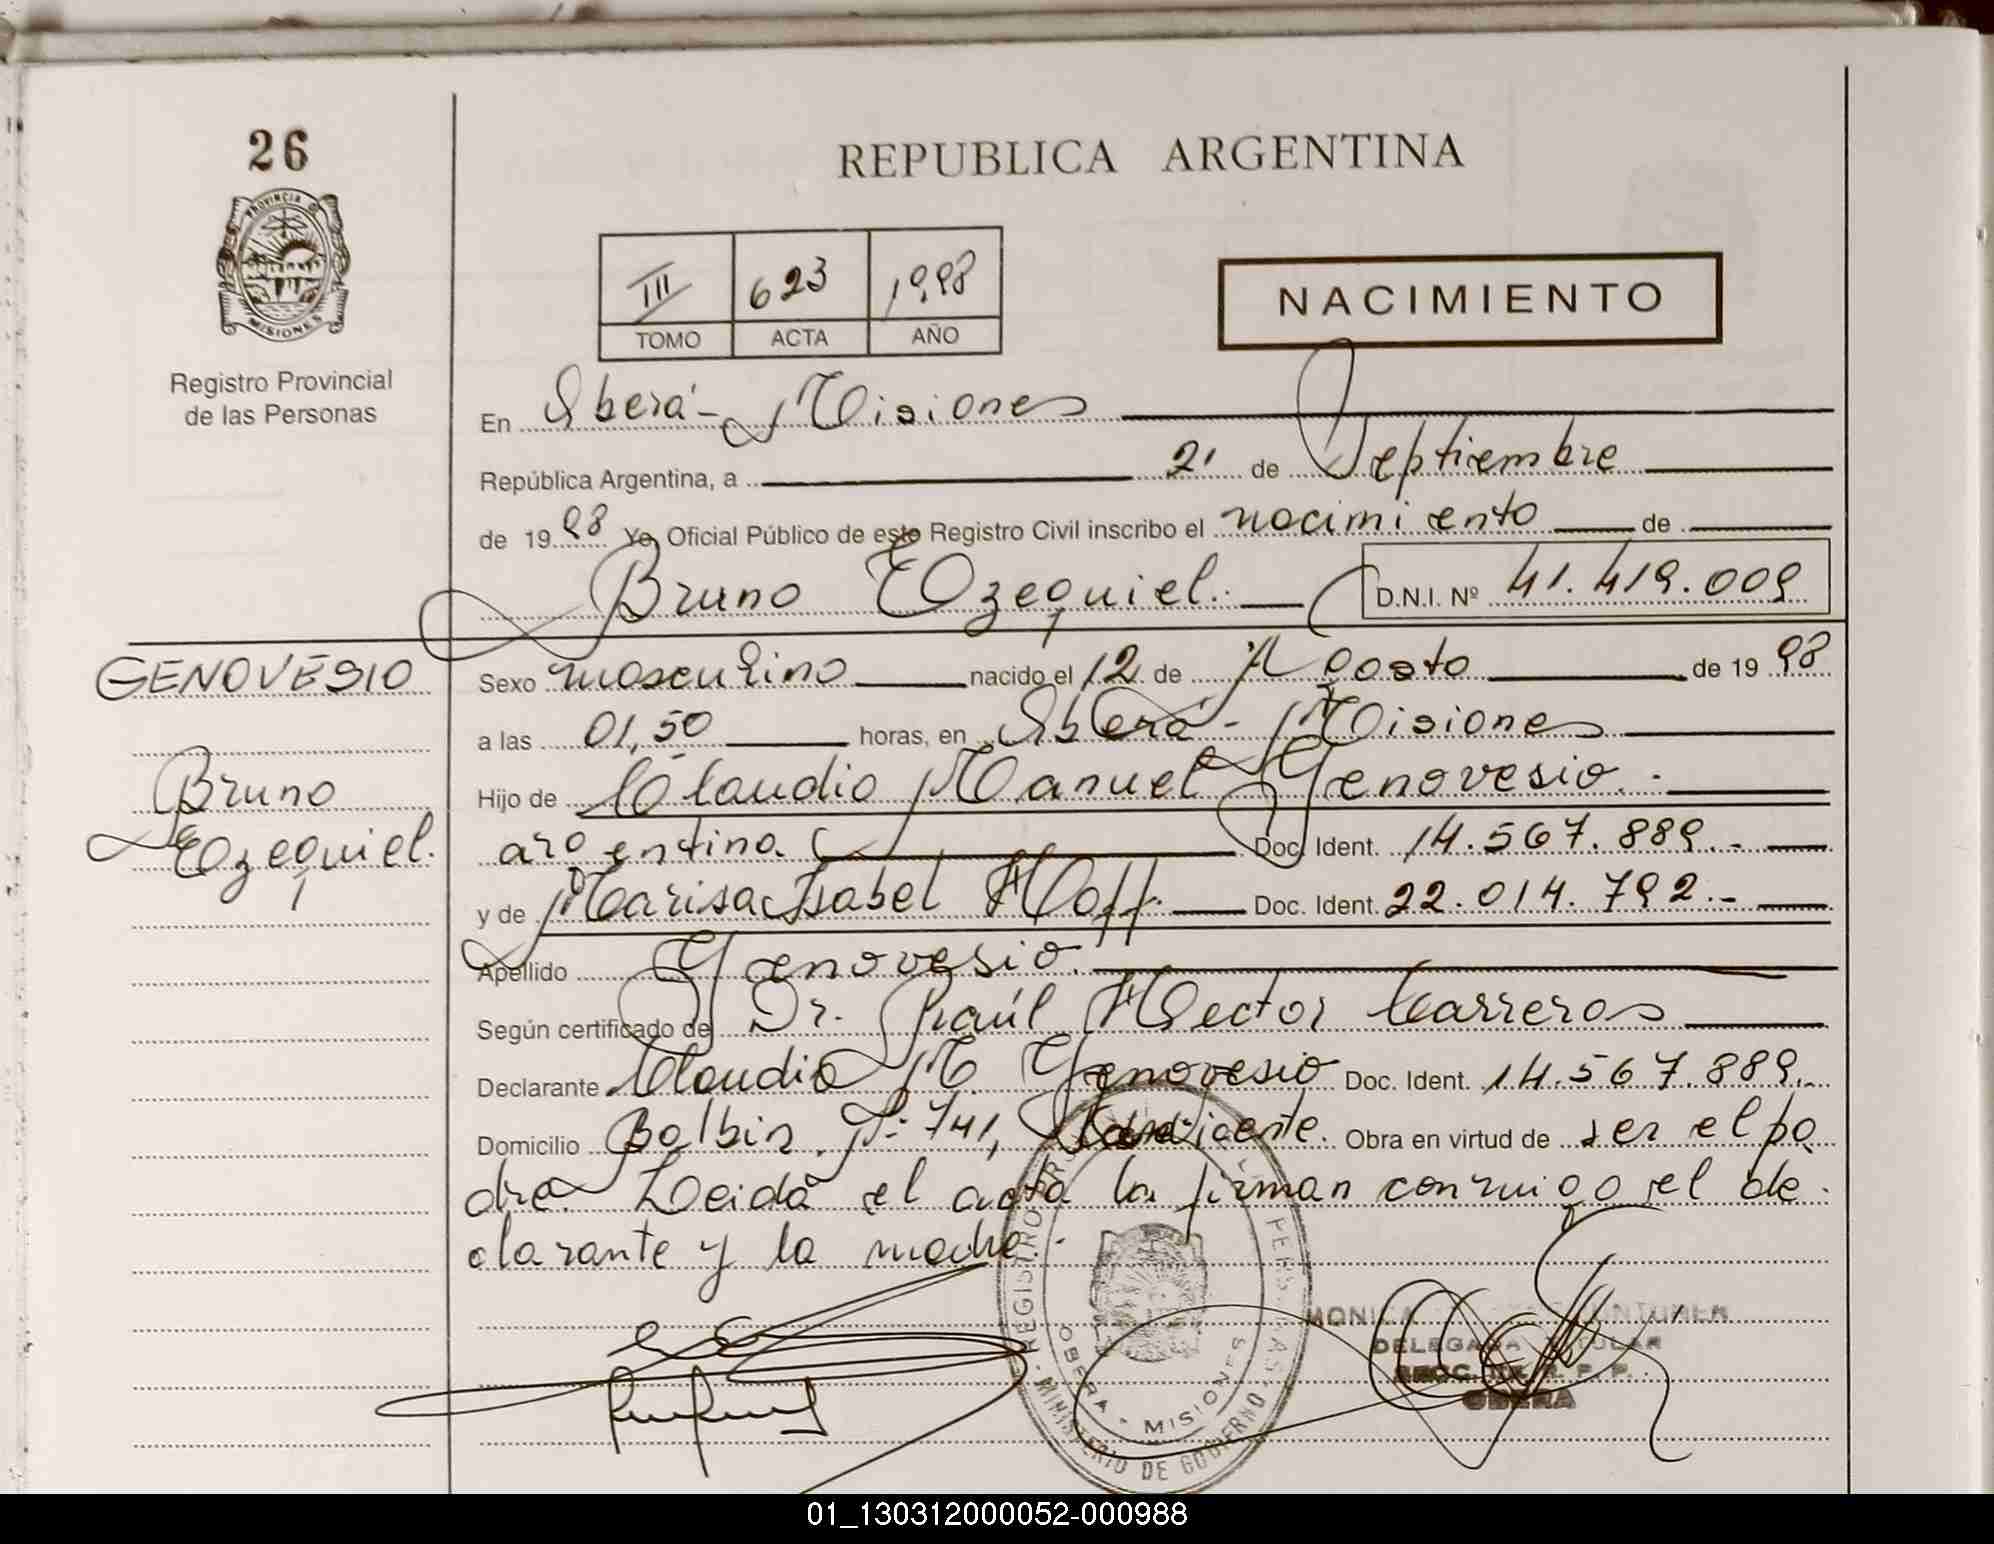 26
PROVINCIA D
MISIONES
Registro Provincial
de las Personas
REPUBLICA ARGENTINA
III 623 1998
TOMO ACTA AÑO
NACIMIENTO
En Oberá - Misiones
República Argentina, a 21 de Septiembre
de 1998 Yo, Oficial Público de este Registro Civil inscribo el nacimiento de
Bruno Ezequiel. D.N.I. Nº 41.419.009
GENOVESIO
Bruno
Ezequiel.
Sexo masculino nacido el 12 de Agosto de 1998
a las 01,50 horas, en Oberá - Misiones
Hijo de Claudio Manuel Genovesio.
argentina Doc. Ident. 14.567.889.-
y de Marisa Isabel Hoff. Doc. Ident. 22.014.792.-
Apellido Genovesio.
Según certificado de Dr. Raúl Hector Carreras
Declarante Claudio M Genovesio Doc. Ident. 14.567.889.-
Domicilio Balbin 741, Obra en virtud de ser el pa
dre. Leida el acta la firman conmigo el de-
clarante y la madre.-
REGISTRO PERSONAS
OBERA - MISIONES
MINISTERIO DE GOBIERNO
MONICA
DELEGADA TITULAR
R. P. P.
OBERA
01_130312000052-000988